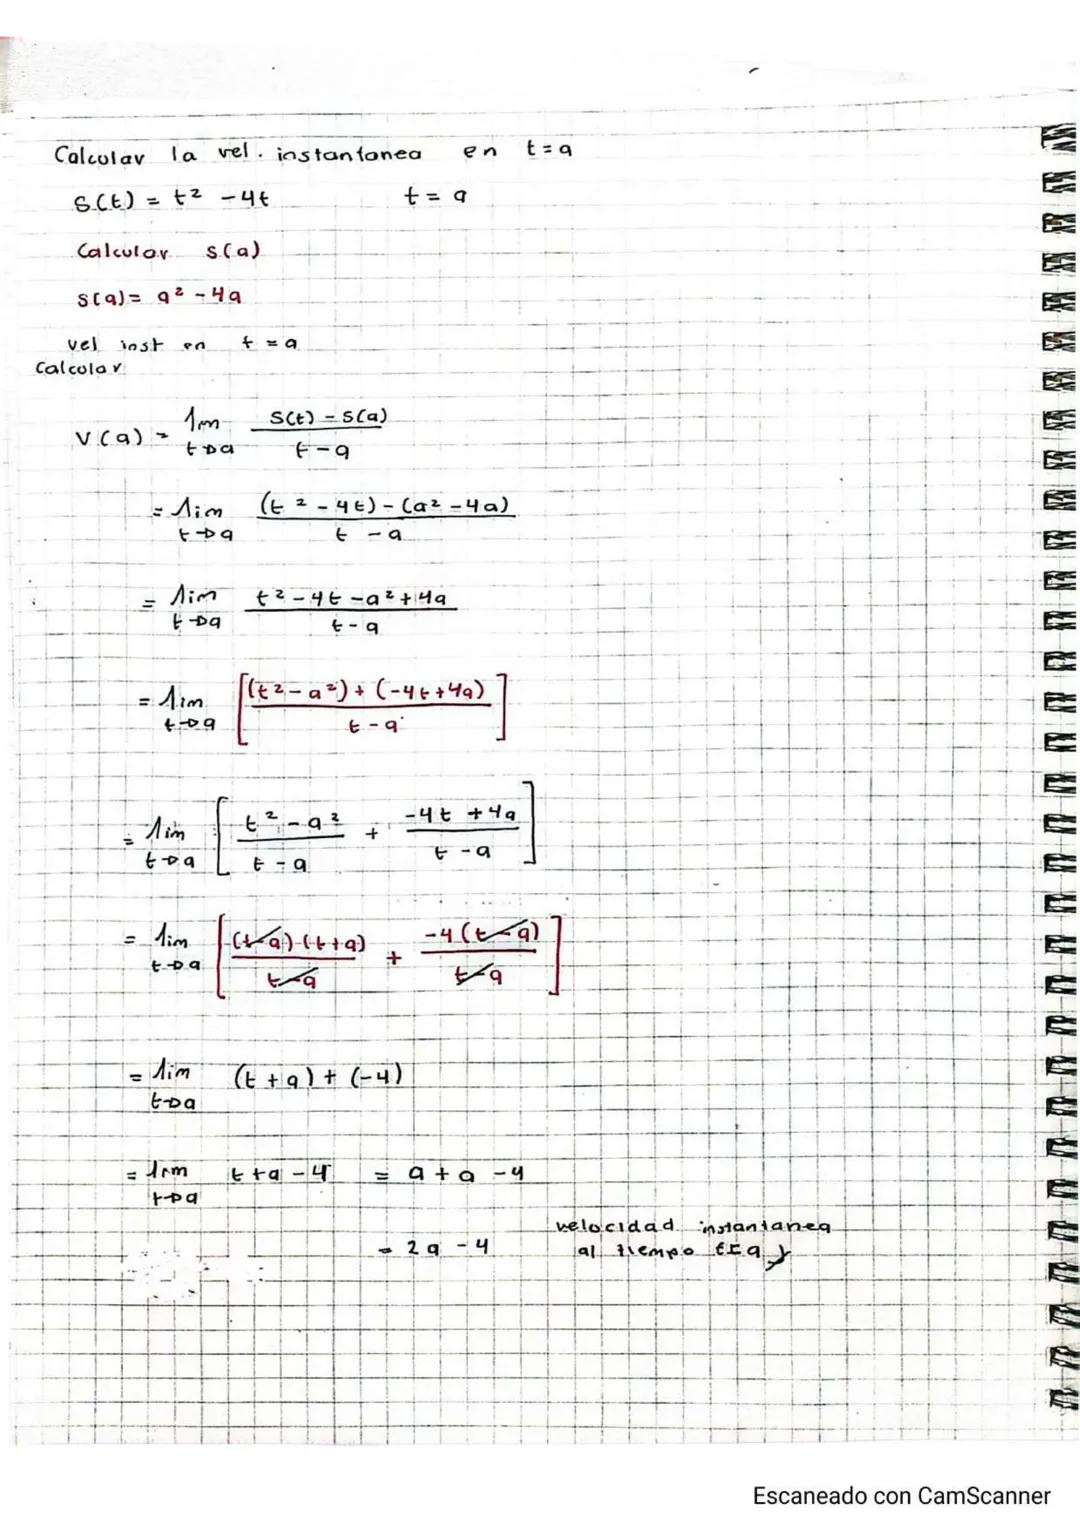 Calcular la vel. instantanea en t=a
S(t) = t² - 4t t = a
Calcular s(a)
s(a) = a² - 4a
vel inst en t = a
Calcular
V(a) = lim t→a S(t) - S(a) / t - a
= lim t→a (t² - 4t) - (a² - 4a) / t - a
= lim t→a t² - 4t - a² + 4a / t - a
= lim t→a [(t² - a²) + (-4t + 4a) / t - a]
= lim t→a [t² - a² / t - a + -4t + 4a / t - a]
= lim t→a [(t-a)(t+a) / t-a + -4(t-a) / t-a]
= lim t→a (t + a) + (-4)
= lim t→a t + a - 4 = a + a - 4
= 2a - 4 velocidad instantanea
al tiempo t=a
Escaneado con CamScanner